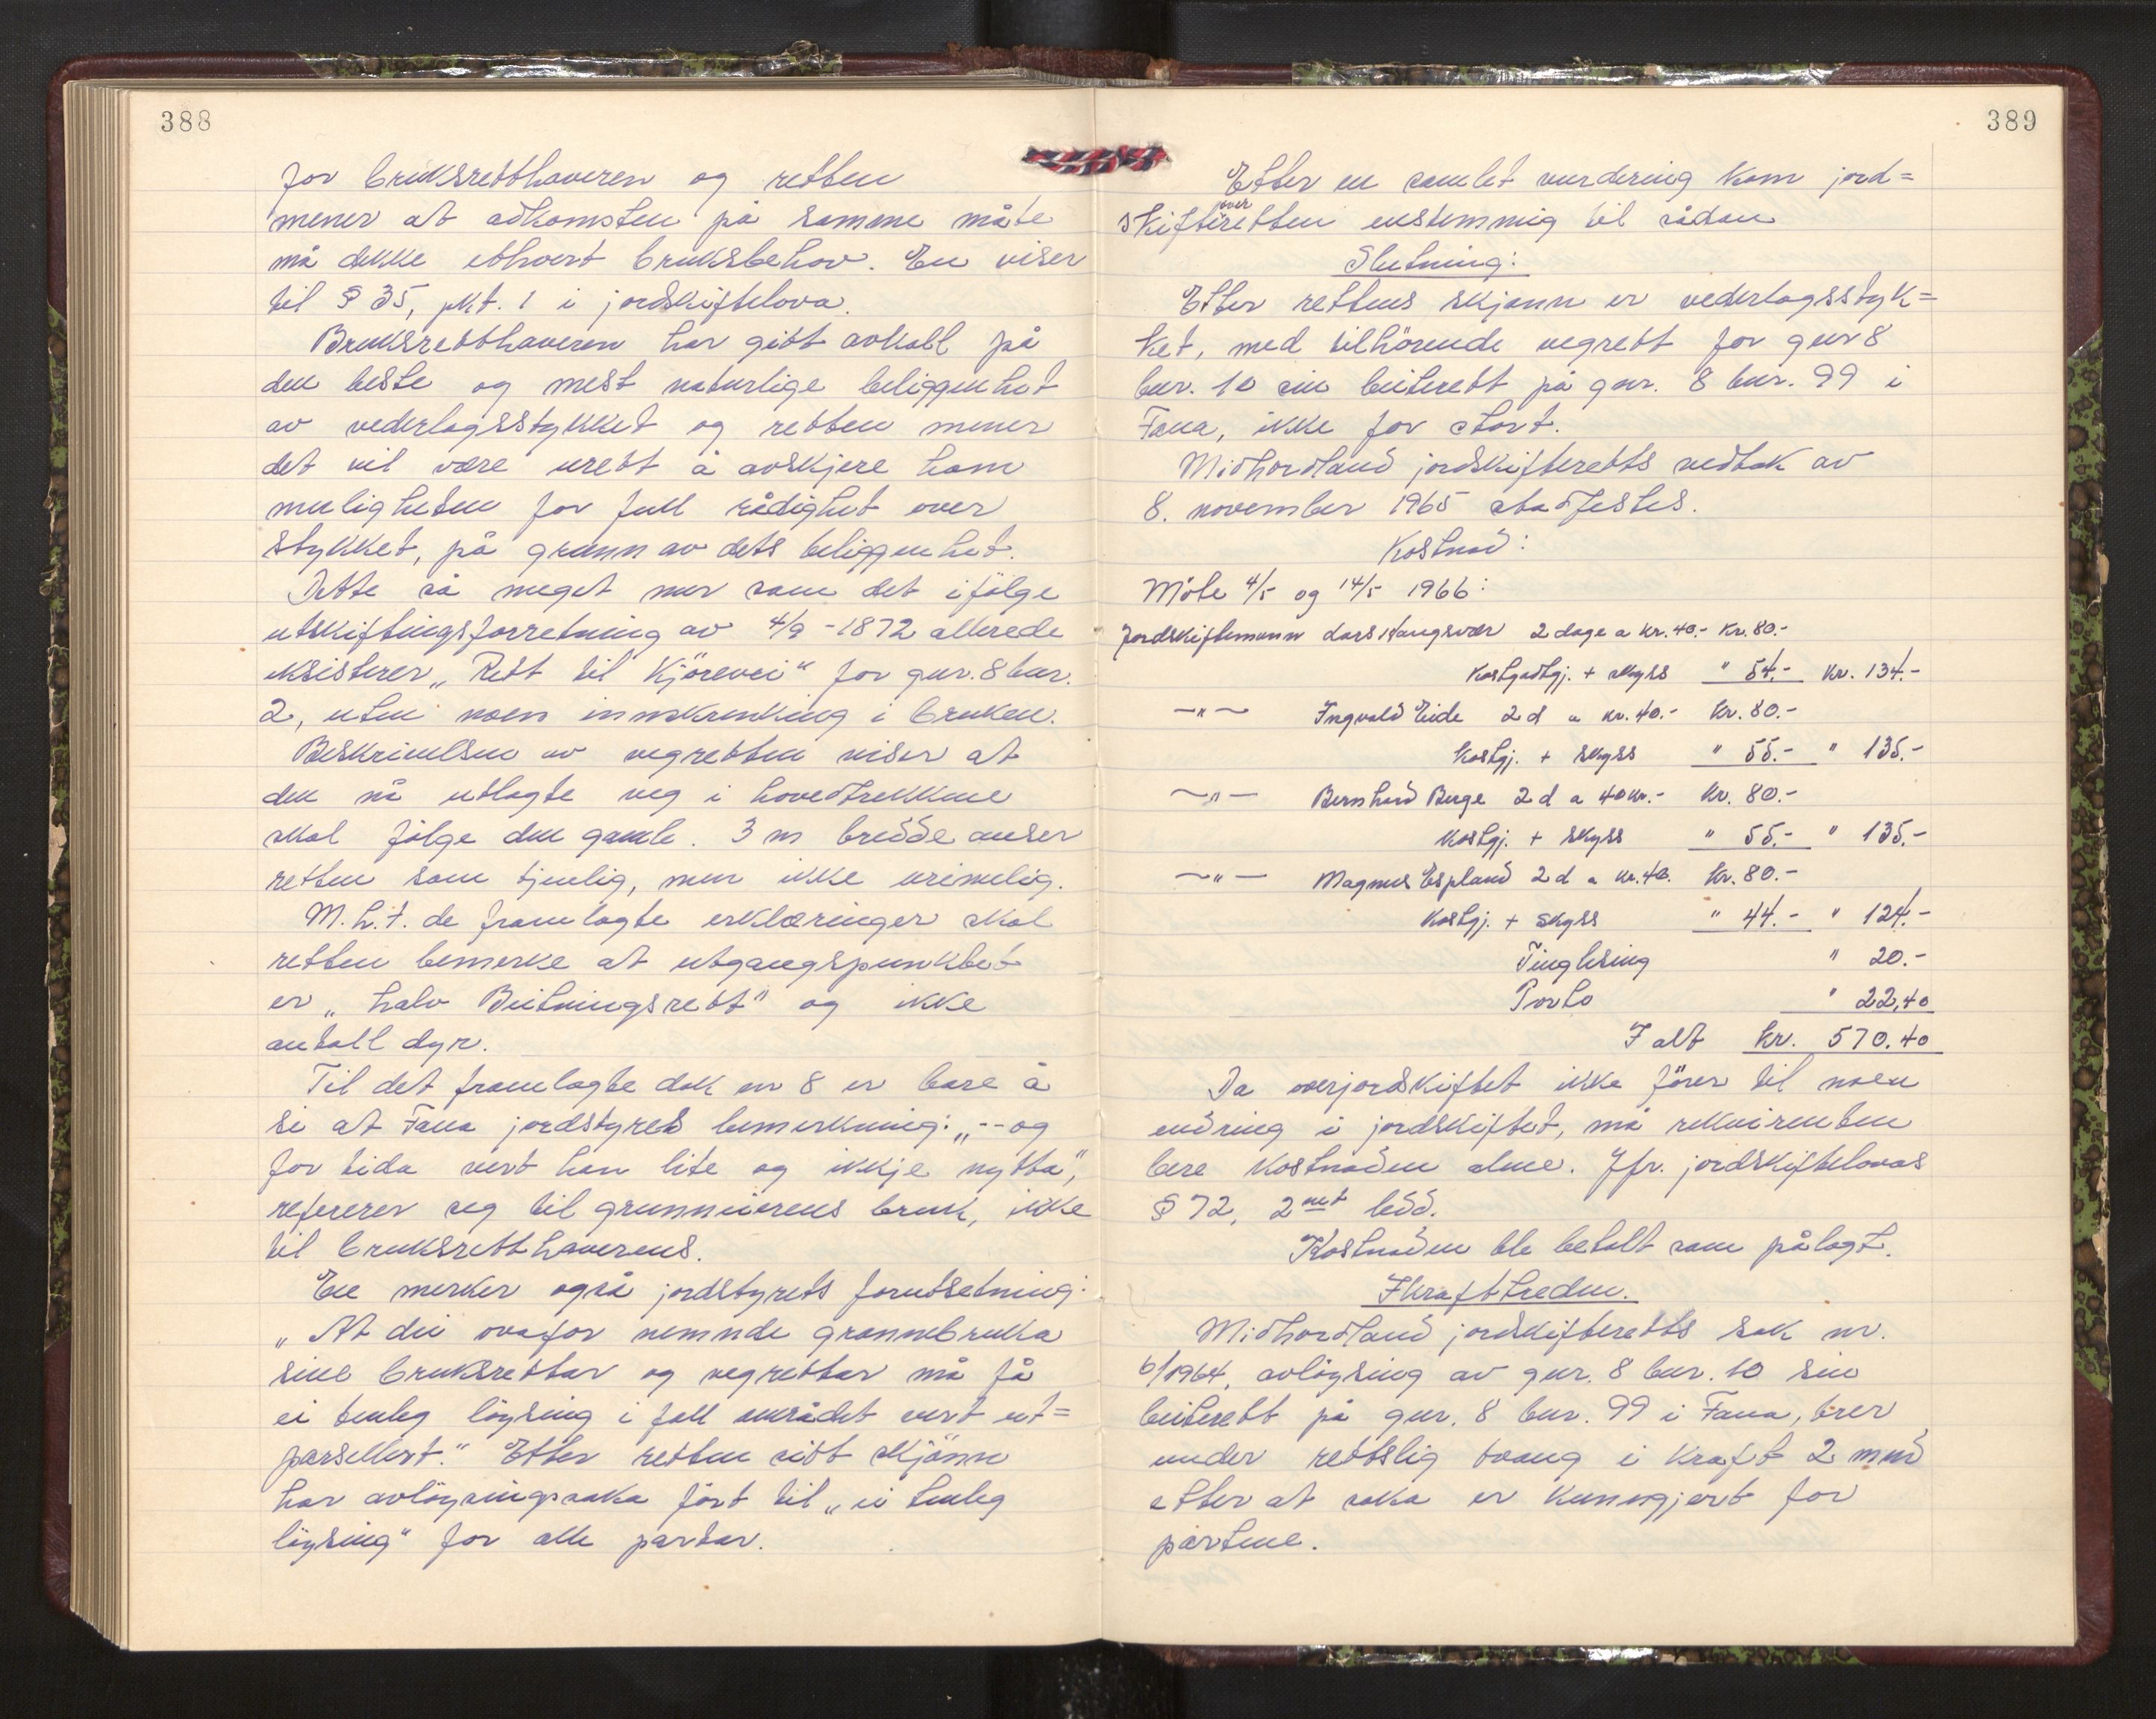 388
for bruksretthaveren og retten
mener at adkomsten på samme måte
må dekke ethvert bruksbehov. En viser
til § 35, pkt. 1 i jordskiftelova.
Bruksretthaveren har gitt avkall på
den beste og mest naturlige beliggenhet
av vederlagsstykket og retten mener
det vil være urett å avskjere ham
muligheten for full rådighet over
stykket, på grunn av dets beliggenhet.
Dette så meget mer som det ifölge
utskiftingsforretning av 4/9 - 1872 allerede
eksisterer „Rett til Kjörevei“ for gnr. 8 bnr.
2, uten noen innskrenking i bruken.
Beskrivelsen av vegretten viser at
den nå utlagte veg i hovedtrekkene
skal fölge den gamle. 3 m bredde anser
retten som tjenlig, men ikke urimelig.
M.h.t. de framlagte erklæringer skal
retten bemerke at utgangspunktet
er „halv Beitningsrett“ og ikke
antall dyr.
Til det framlagte dok nr 8 er bare å
si at Fana jordstyres bemerkning: „-- og
for tida vert han lite og ikkje nytta“,
refererer seg til grunneierens bruk, ikke
til bruksretthaverens.
En merker også jordstyrets forutsetning:
„At dei ovafor nemnde grannebruka
sine bruksrettar og vegrettar må få
ei tenleg löysing i fall området vert ut=
parsellert.“ Etter retten sitt skjönn
har avlöysingssaka fört til „ei tenleg
löysing“ for alle partar.
389
Etter en samlet vurdering kom jord=
skifteoverretten enstemmig til sådan
Slutning:
Etter rettens skjønn er vederlagsstyk=
ket, med tilhörende vegrett for gnr 8
bnr. 10 sin beiterett på gnr. 8 bnr. 99 i
Fana, ikke for stort.
Midhordland jordskifteretts vedtak av
8. november 1965 stadfestes.
Kostnad:
Möte 4/5 og 14/5 1966:
Jordskiftemann Lars Haugsvær 2 dage a kr. 40.- Kr. 80.-
Kostgodtgj. + skyss " 54.- Kr. 134.-
—"— Ingvald Eide 2 d a kr. 40.- Kr. 80.-
Kostgj. + skyss " 55.- " 135.-
—"— Bernhard Berge 2 d a 40 kr.- Kr. 80.-
Kostgj. + skyss " 55.- " 135.-
—"— Magnus Espland 2 d a kr. 40. Kr. 80.-
Kostgj. + skyss " 44.- " 124.-
Tinglesing " 20.-
Porto " 22,40
I alt Kr. 570.40
Da overjordskiftet ikke förer til noen
endring i jordskiftet, må rekvirenten
bere kostnaden alene. Jfr. jordskiftelovas
§ 72, 2net ledd.
Kostnaden ble betalt som pålagt.
Ikrafttreden.
Midhordland jordskifteretts sak nr.
6/1964, avlöysing av gnr. 8 bnr. 10 sin
beiterett på gnr. 8 bnr. 99 i Fana, trer
under rettslig tvang i kraft 2 mnd
etter at saka er kunngjort for
partene.